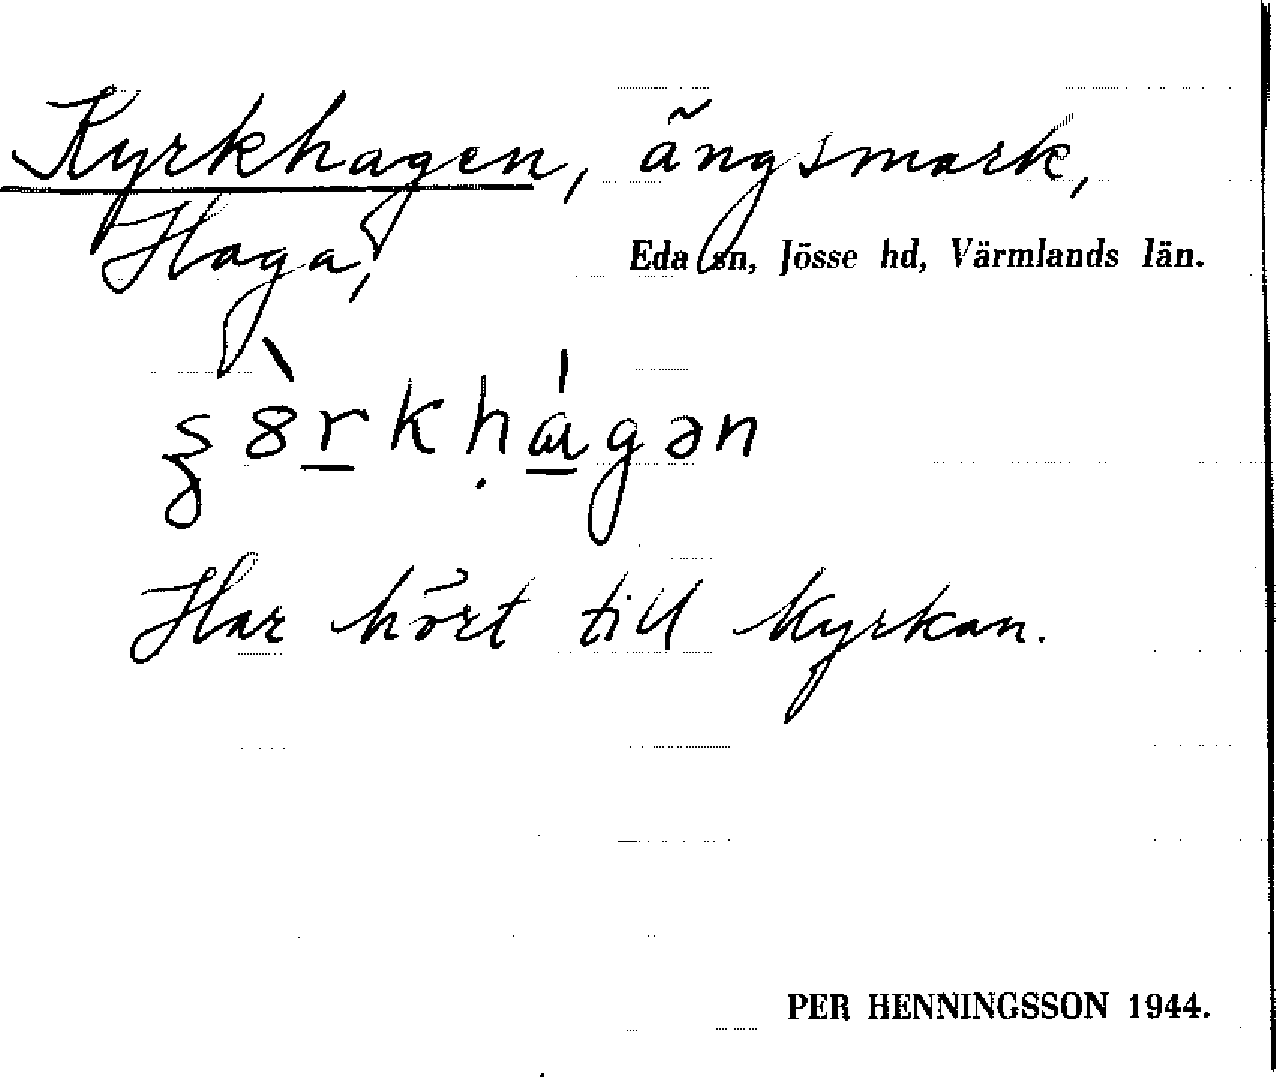 Kyrkhagen, ängsmark,
Haga,
Eda sn, Jösse hd, Värmlands län.
Har hört till Kyrkan.
PER HENNINGSSON 1944.